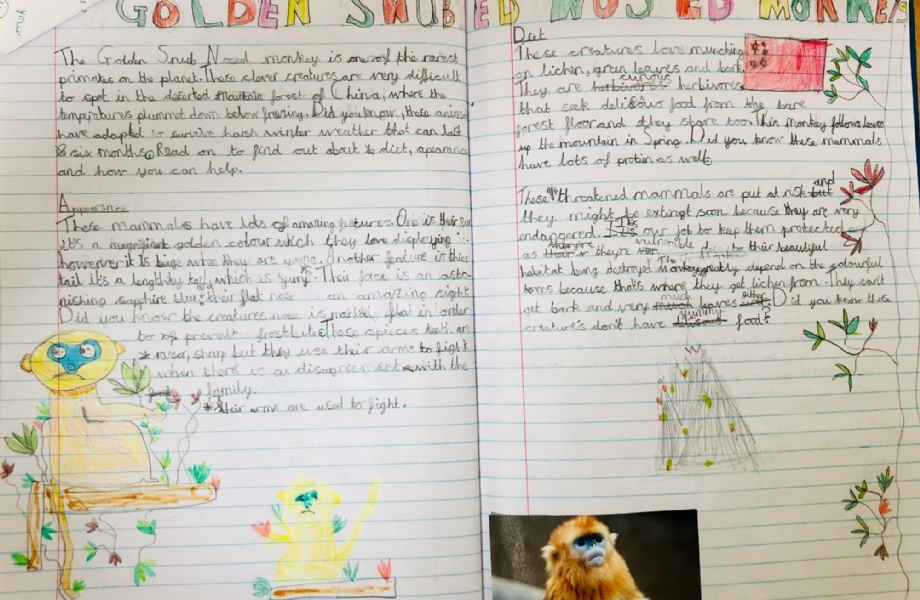 GOLDEN SNUB NOSED MONKEYS
The Golden Snub Nosed monkey is one of the rarest
primates on the planet. These clever creatures are very difficult
to spot in the deserted mountain forest of China, where the
temperatures plummet down below freezing. Did you know, these
have adapted to survive harsh winter weather that can last
six months. Read on to find out about diet,
and how you can help.
Appearance
These mammals have lots of amazing features. One is their
it's a magnificent golden colour which they love displaying
however it is beige when they are young. Another feature is
tail it's a lengthy tail which is furry. Their face is an asto-
nishing sapphire blue their flat nose is an amazing sight
Did you know the creatures nose is mostly flat in order
to prevent frostbite. These spices teeth are
* razor, sharp but they use their arms to fight
when there is a disagreement with the
family.
* their arms are used to fight.
Diet
These creatures love munching
on lichen, green leaves and bark
They are curious herbivores
that seek delicious food from the bare
forest floor and they share too. This monkey follows leaves
up the mountain in Spring. Did you know these mammals
have lots of protin as well.
These threatened mammals are put at risk and
they might be extinct soon because they are very
endangered. our job to keep them protected
as they're vulnrable due to their beautiful
habitat being destroyed. The Monkey greatly depend on the colourful
trees because that's where they get lichen from. They can't
get bark and very much leaves Did you know these
creature's don't have yummy food?